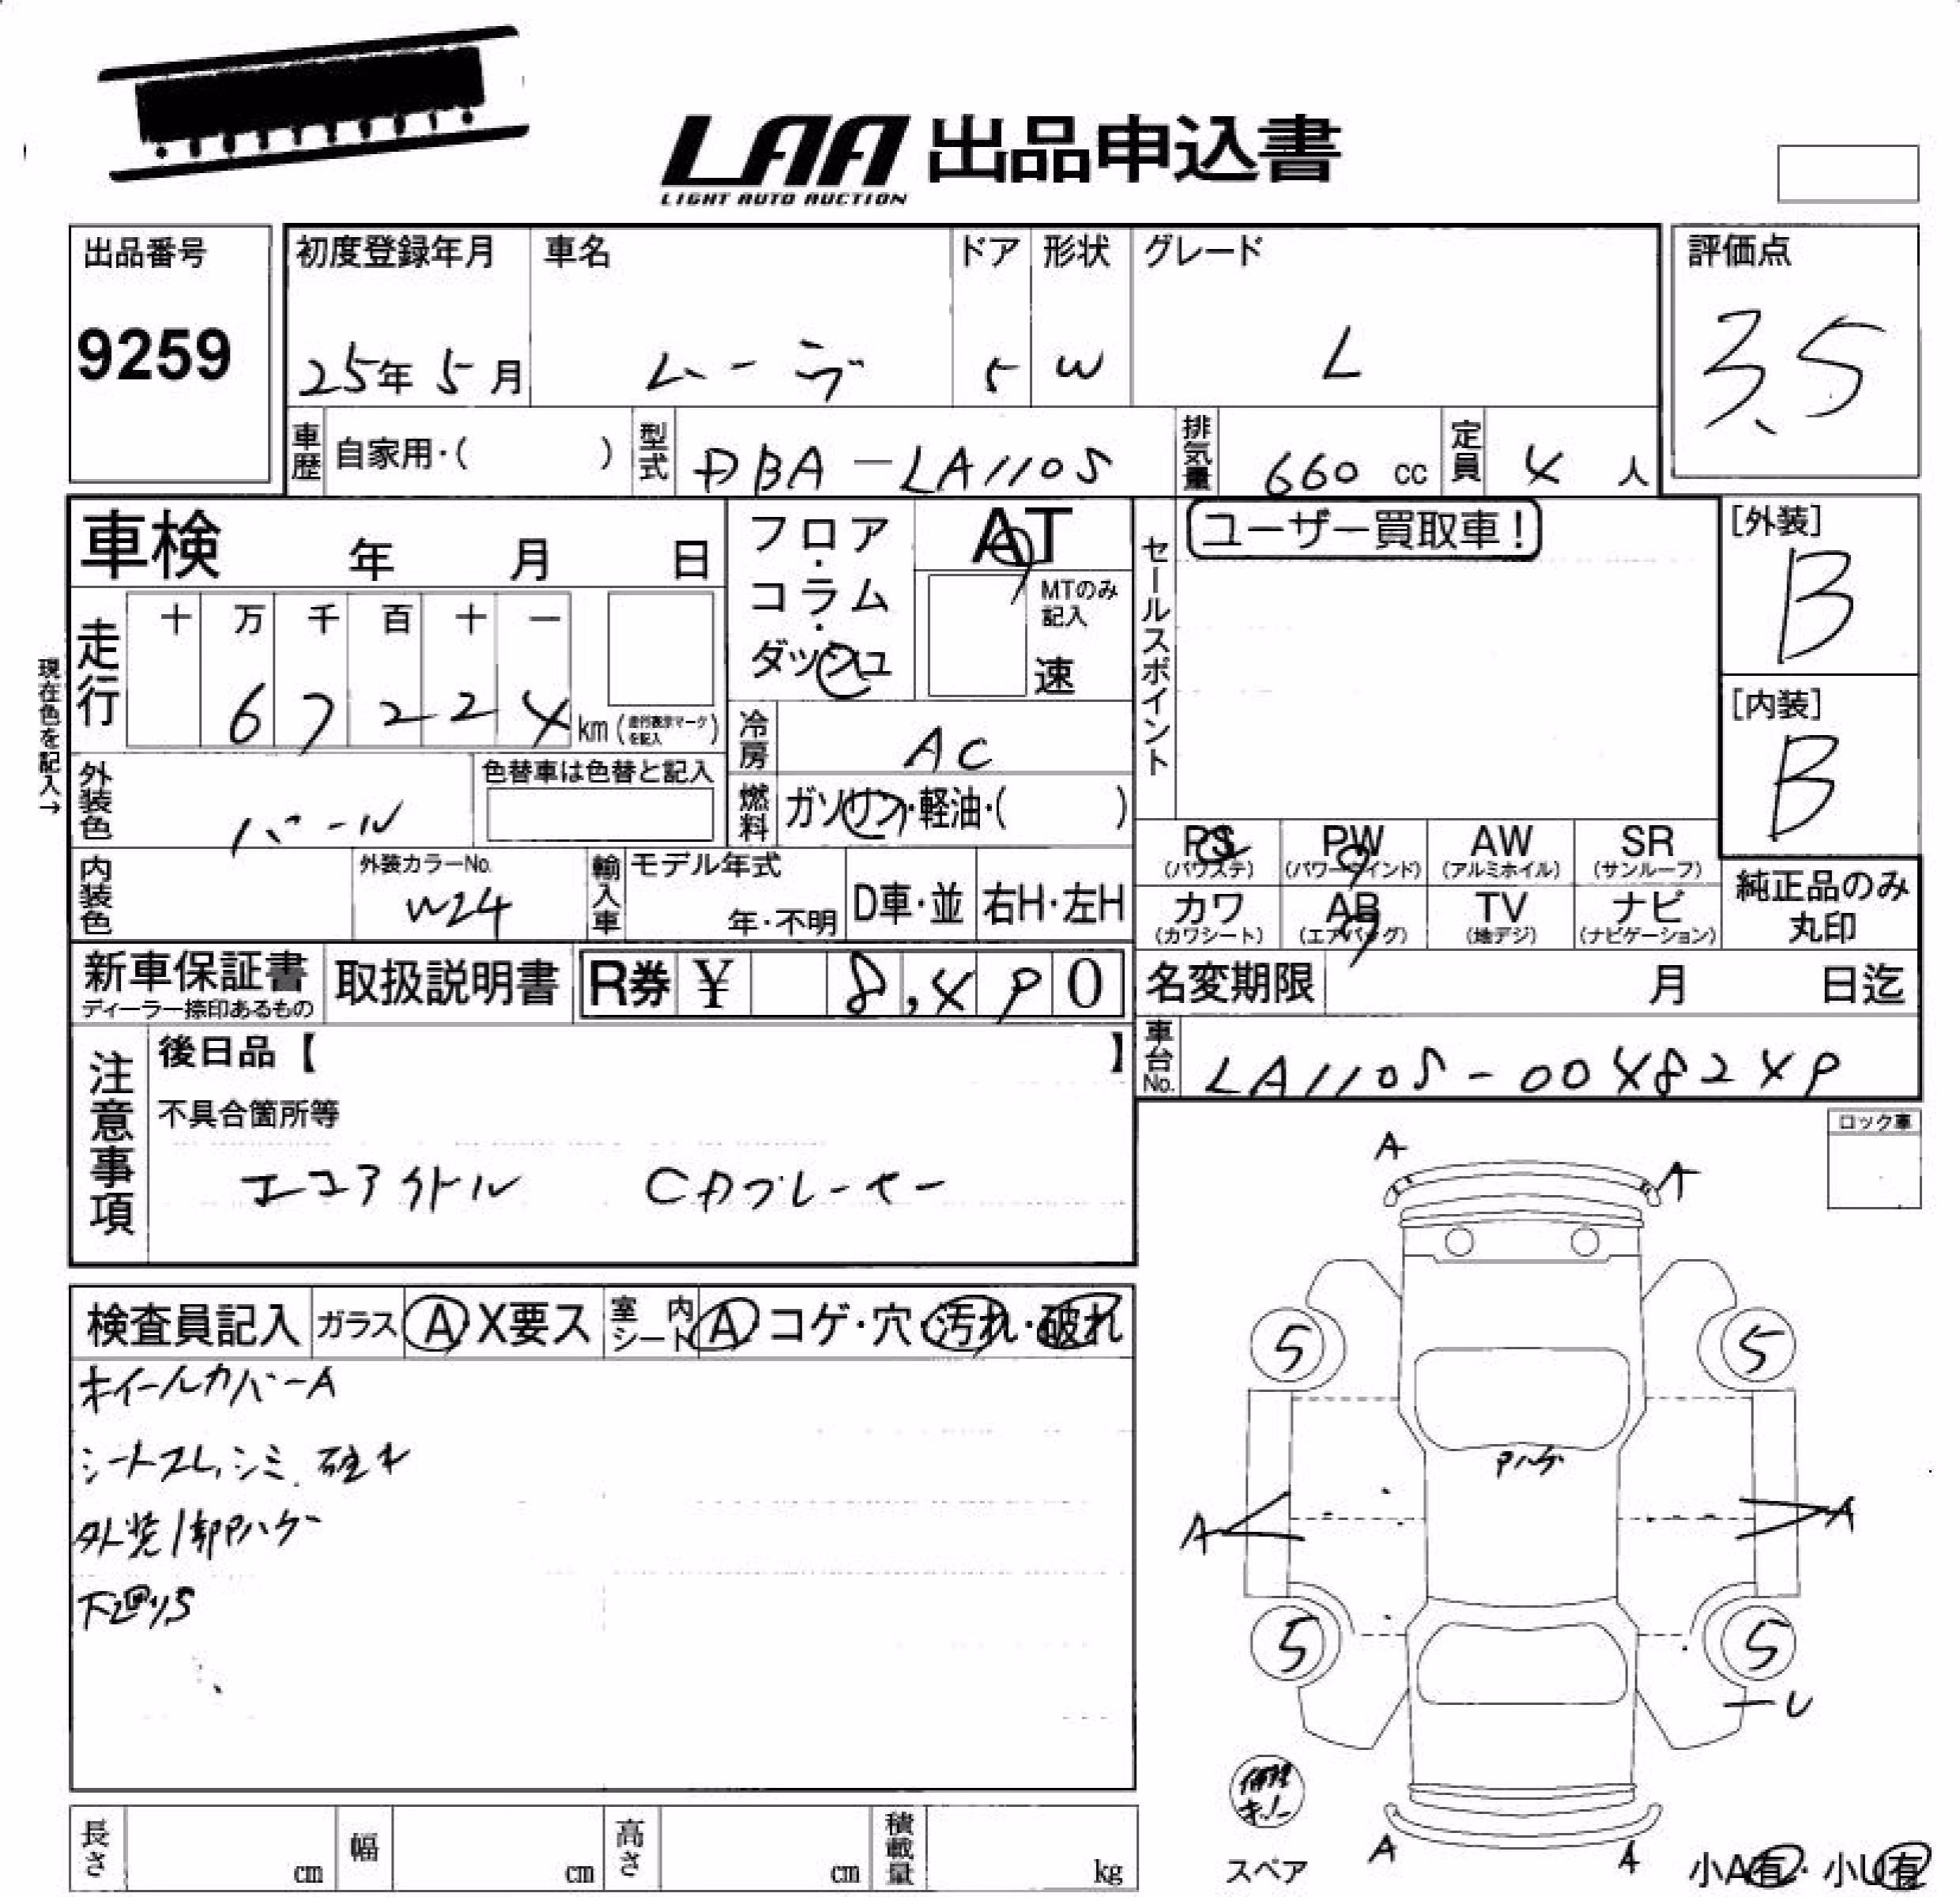 LAA 出品申込書
LIGHT AUTO AUCTION
出品番号
9259
初度登録年月
25年 5月
車名
ムーヴ
ドア
5
形状
W
グレード
L
評価点
3.5
車歴 自家用・( )
型式 DBA-LA110S
排気量 660 cc
定員 4 人
車検 年 月 日
フロア・コラム・ダッシュ
AT
MTのみ記入
速
セールスポイント
ユーザー買取車!
[外装]
B
[内装]
B
現在色を記入→
走行
十 万 千 百 十 一
6 7 2 2 4 km (走行表示マークを記入)
冷房 AC
燃料 ガソリン・軽油・( )
外装色 パール
色替車は色替と記入
内装色
外装カラーNo.
W24
輸入車
モデル年式
年・不明
D車・並
右H・左H
PS (パワステ)
PW (パワーウインド)
AW (アルミホイル)
SR (サンルーフ)
カワ (カワシート)
AB (エアバッグ)
TV (地デジ)
ナビ (ナビゲーション)
純正品のみ丸印
新車保証書
ディーラー捺印あるもの
取扱説明書
R券 ¥ 8,490
名変期限 月 日迄
車台No. LA110S-0048249
注意事項
後日品【 】
不具合箇所等
エコアイドル CDプレーヤー
ロック車
検査員記入
ガラス A X要ス
室内シート A コゲ・穴・汚れ・破れ
ホイールカバーA
シートスレ、シミ、破れ
外装1部Pハゲ
下廻りS
A A
5 5
Pハゲ
A A
5 5
U
スペア
A A
小A有・小U有
長さ cm
幅 cm
高さ cm
積載量 kg